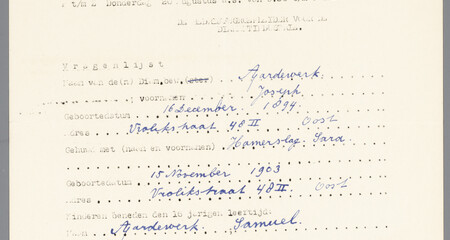 t/m Z Donderdag 20 Augustus a.s. van
DE
V r a g e n l i j s t
Naam van de(n) Dienaeu (ster) Aardewerk.
; voornamen Joseph
Geboortedatum 16 December 1894.
Adres Vrolikstraat 48 II Oost
Gehuwd met (naam en voornamen) Hamerslag. Sara.
Geboortedatum 15 November 1903
Adres Vrolikstraat 48 II. Oost
Kinderen beneden den 16 jarigen leertijd:
Naam Aardewerk. Samuel.